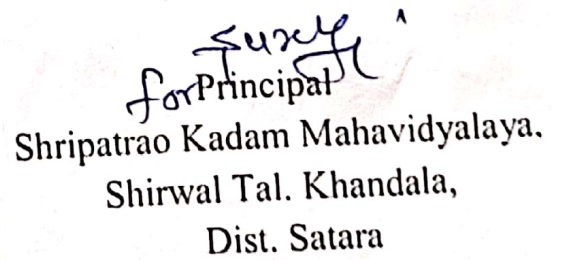 for Principal
Shripatrao Kadam Mahavidyalaya.
Shirwal Tal. Khandala,
Dist. Satara